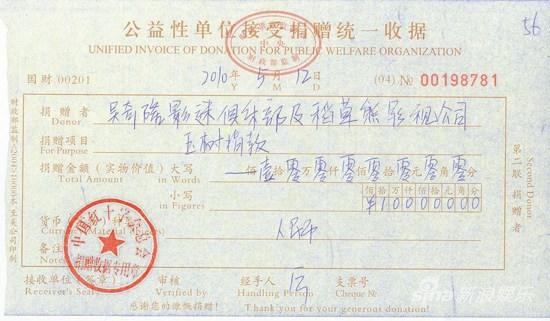 公益性单位接受捐赠统一收据
UNIFIED INVOICE OF DONATION FOR PUBLIC WELFARE ORGANIZATION
中央
财政部监制
56
国财 00201
2010年 5月 12日
Y M D
(04) № 00198781
捐赠者 吴奇隆影迷俱乐部及稻草熊影视公司
Donor
捐赠项目 玉树捐款
For Purpose
捐赠金额（实物价值）大写 佰壹拾零万零仟零佰零拾零元零角零分
Total Amount in Words
小写 佰拾万仟佰拾元角分
in Figures ¥10000000
货币
人民币
备注
中国红十字总会
捐赠收据专用章
接收单位（签章） 审核 经手人 支票号
Receiver's Seal Verified by Handling Person Cheque №
感谢您的慷慨捐赠！ Thank you for your generous donation!
第二联 捐赠者
Second Donor
sina 新浪娱乐